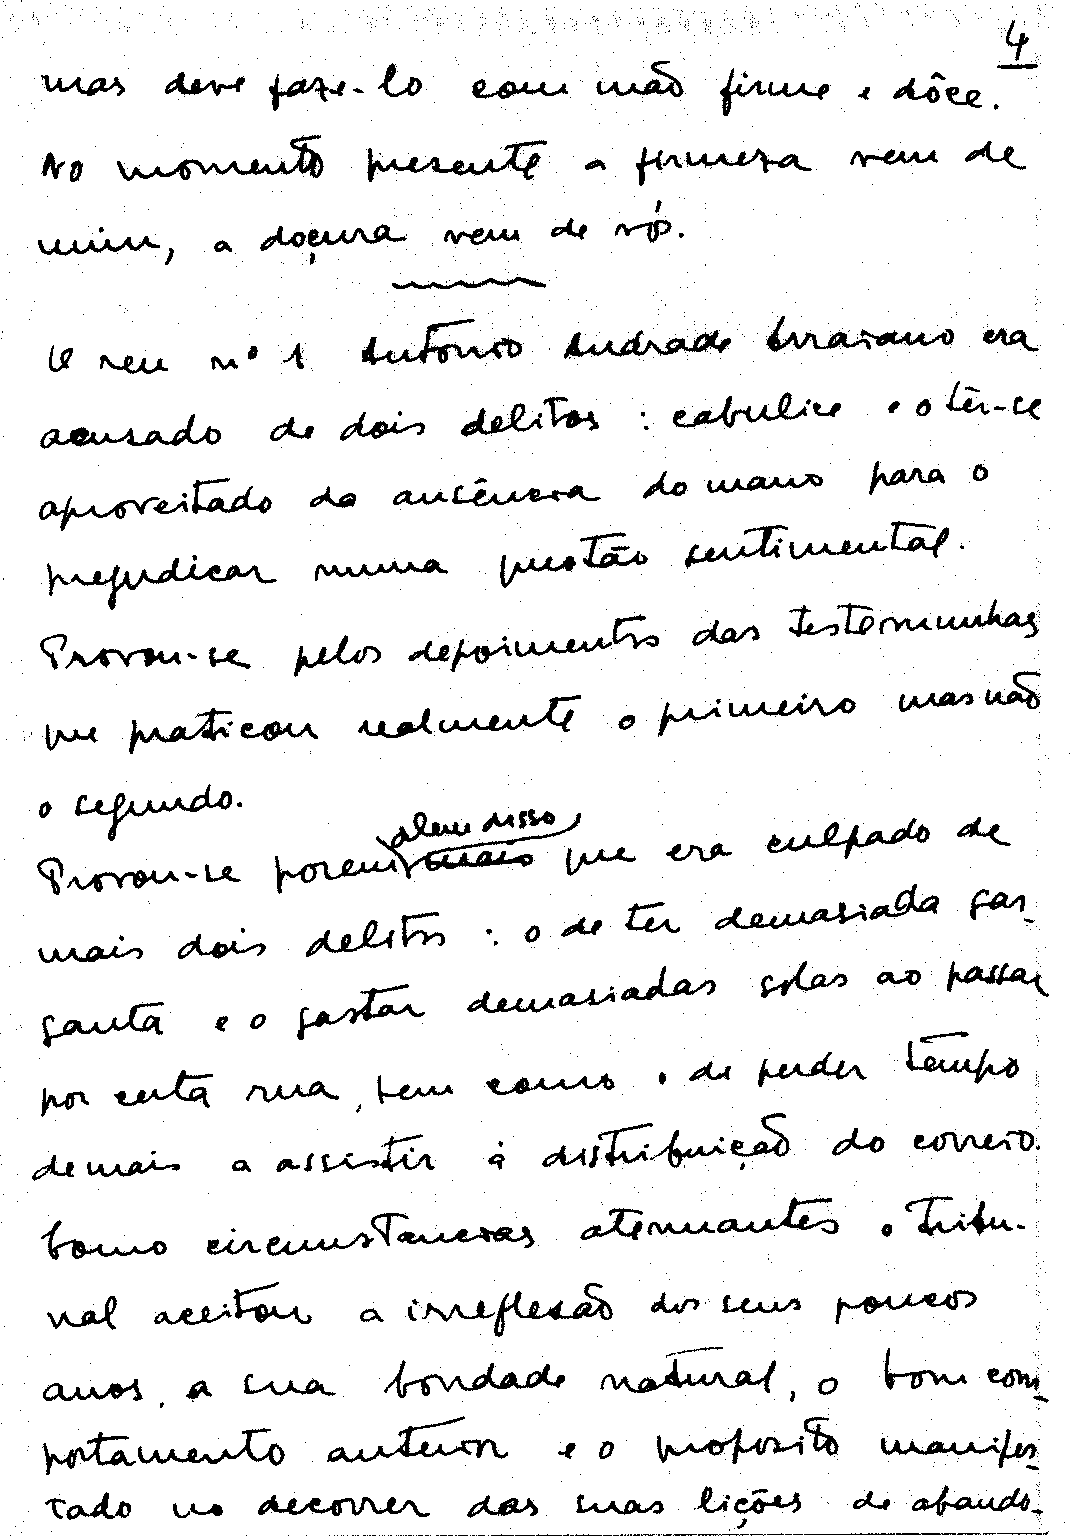 4
mas deve faze-lo com mão firme e dôce.
No momento presente a firmeza vem de
mim, a doçura vem de vós.
O reu nº 1 António Andrade Arraiano era
acusado de dois delitos : cabulice e o têr-se
aproveitado da ausência do mano para o
prejudicar numa questão sentimental.
Provou-se pelos depoimentos das testemunhas
que praticou realmente o primeiro mas não
o segundo.
alem disso
Provou-se porem mais que era culpado de
mais dois delitos : o de ter demasiada gar-
ganta e o gastar demasiadas solas ao passar
por certa rua, bem como o de perder tempo
demais a assistir á distribuição do correio.
Como circunstancias atenuantes o Tribu-
nal aceitou a irreflexão dos seus poucos
anos, a sua bondade natural, o bom com-
portamento anterior e o proposito manifes-
tado no decorrer das suas lições de abando-